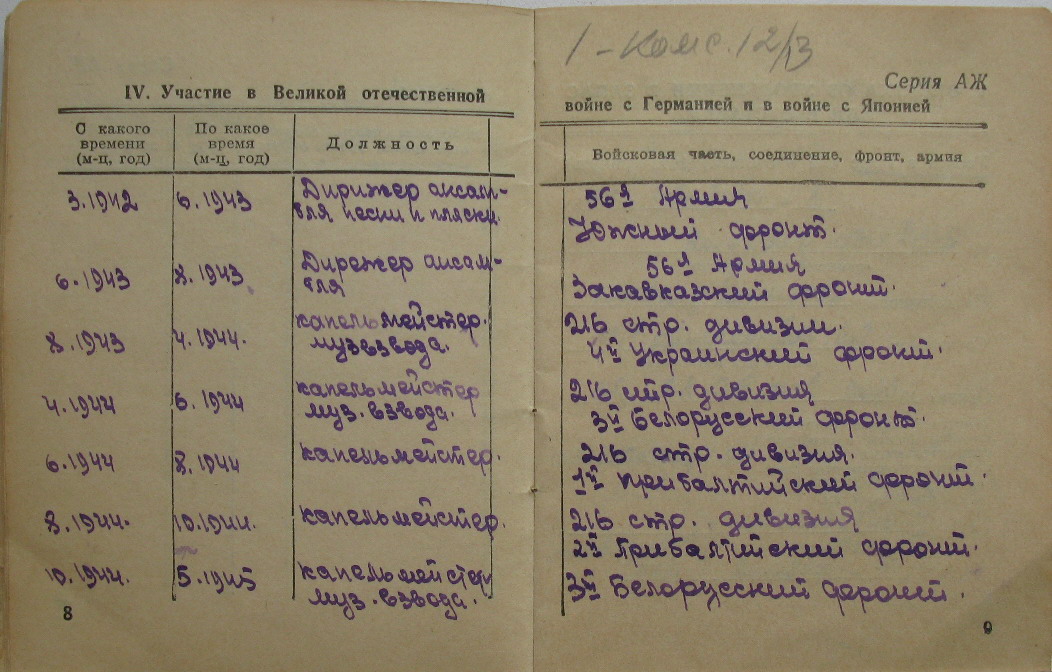 IV. Участие в Великой отечественной
С какого времени (м-ц, год)
По какое время (м-ц, год)
Должность
3.1942 6.1943 Дирижер ансам-
бля песни и пляски.
6.1943 8.1943 Дирежер ансам-
бля
8.1943 4.1944. капельмейстер.
музвзвода.
4.1944 6.1944 капельмейстер
муз. взвода.
6.1944 8.1944 капельмейстер.
8.1944. 10.1944. капельмейстер.
10.1944. 5.1945 капельмейстер
муз. взвода.
8
1-комс. 12/13
Серия АЖ
войне с Германией и в войне с Японией
Войсковая часть, соединение, фронт, армия
56я Армия
Южный фронт.
56я Армия
Закавказский фронт.
216 стр. дивизии.
4й Украинский фронт.
216 стр. дивизия
3й Белорусский фронт.
216 стр. дивизия.
1й прибалтийский фронт.
216 стр. дивизия
2й Прибалтийский фронт.
3й Белорусский фронт.
9